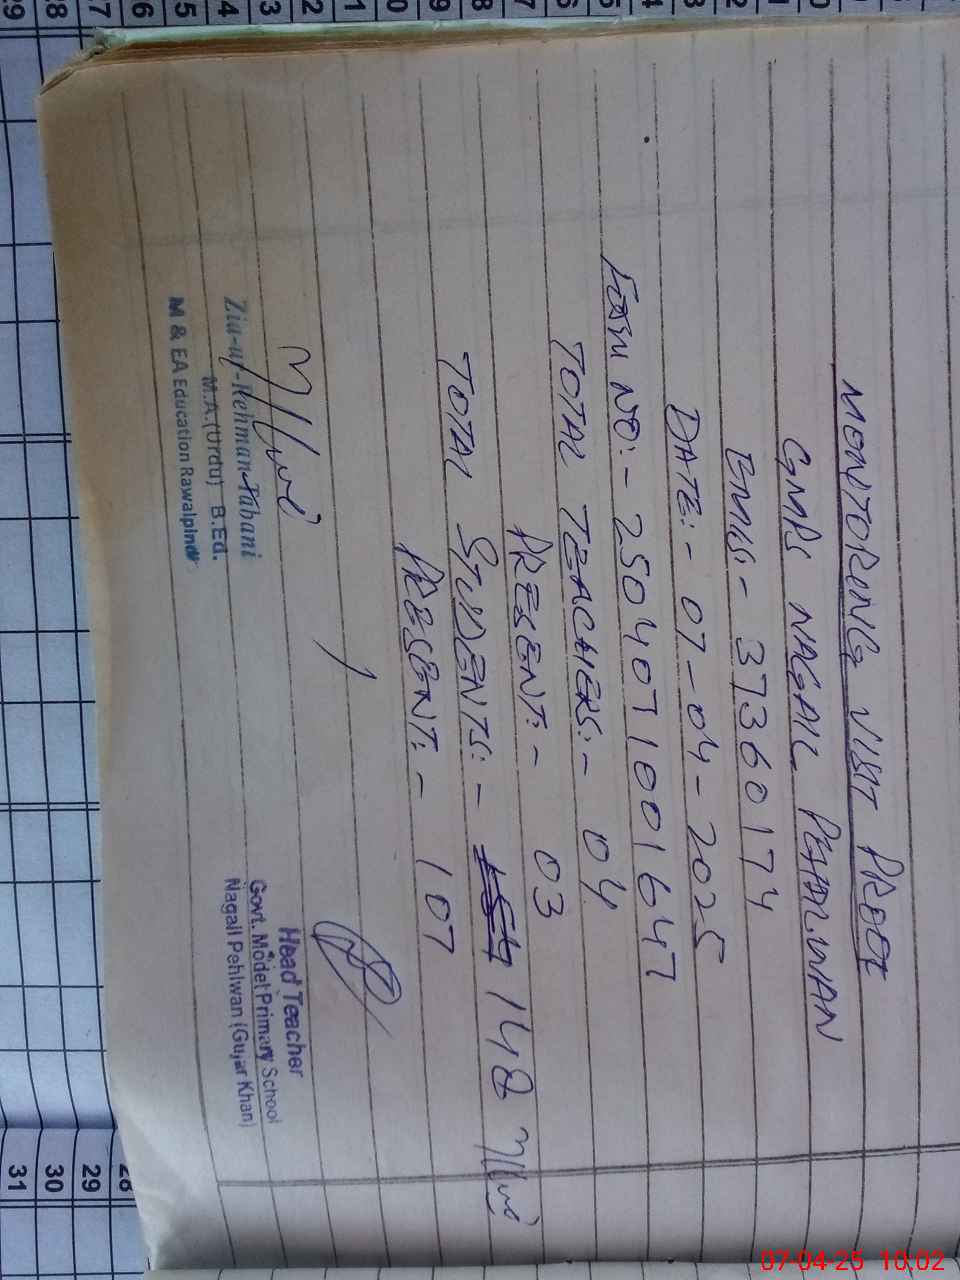 MONITORING VISIT PROOF
GMPS NAGAIL PEHALWAN
EMIS:- 37360174
DATE:- 07-04-2025
FORM NO:- 25040710016 47
TOTAL TEACHERS:- 04
PRESENT:- 03
TOTAL STUDENTS:- 148
PRESENT:- 107
Zia-ur-Rehman Rabani
M.A.(Urdu) B.Ed.
M & EA Education Rawalpindi
Head Teacher
Govt. Model Primary School
Nagail Pehlwan (Gujar Khan)
29 28 27 16 15 14 13 12 11 10 9 8 7 6 5 4 3 2 1 0
31 30 29 28
07-04-25 10:02